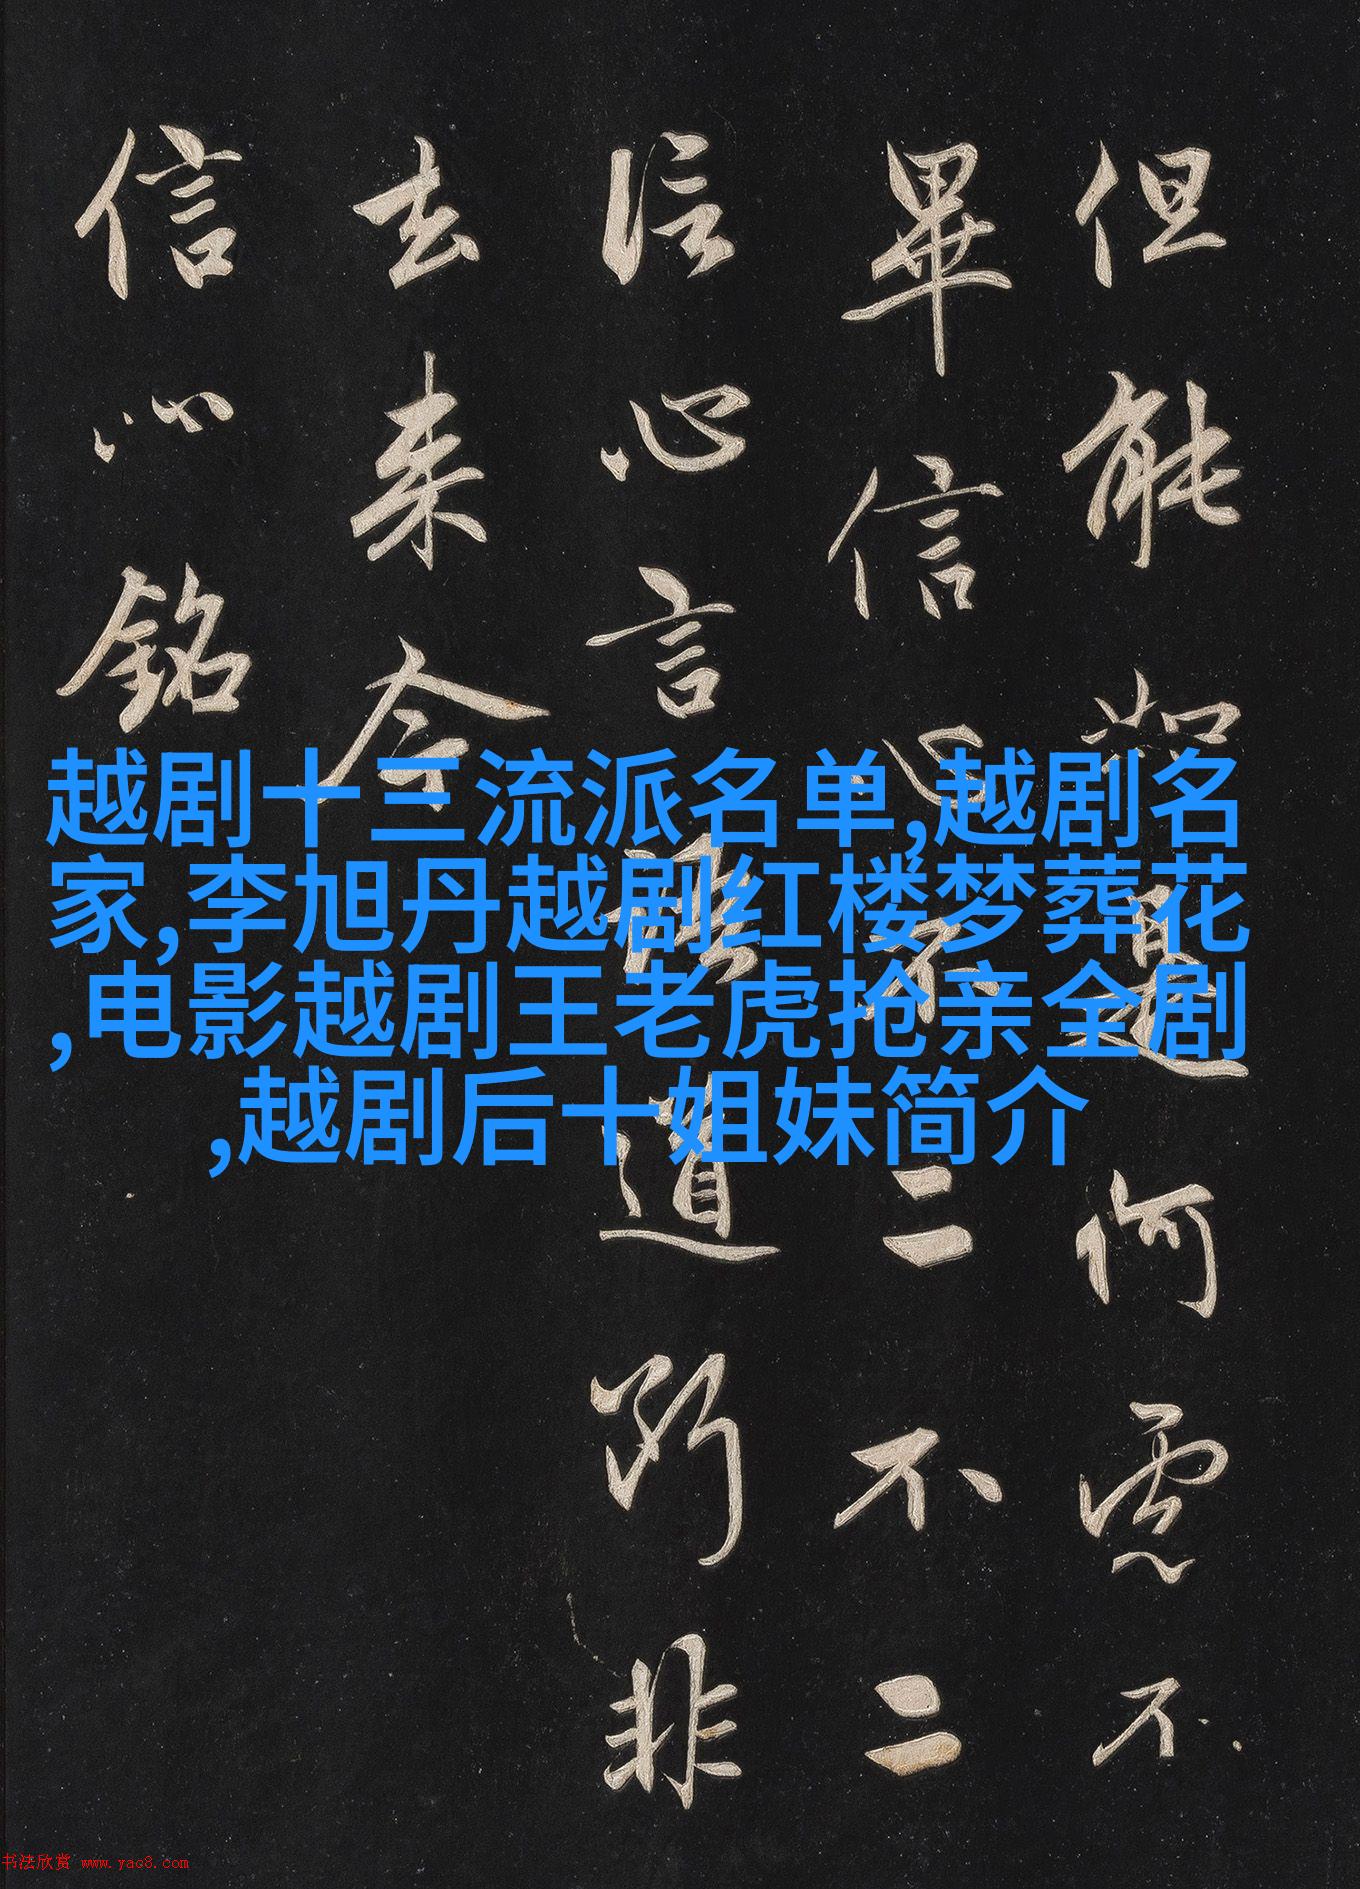 但能如是何慮不
畢信心不二不二
信心言語道斷非
去来今
信心銘
越剧十三流派名单,越剧名
家,李旭丹越剧红楼梦葬花
,电影越剧王老虎抢亲全剧
,越剧后十姐妹简介
书法欣赏 www.yac8.com